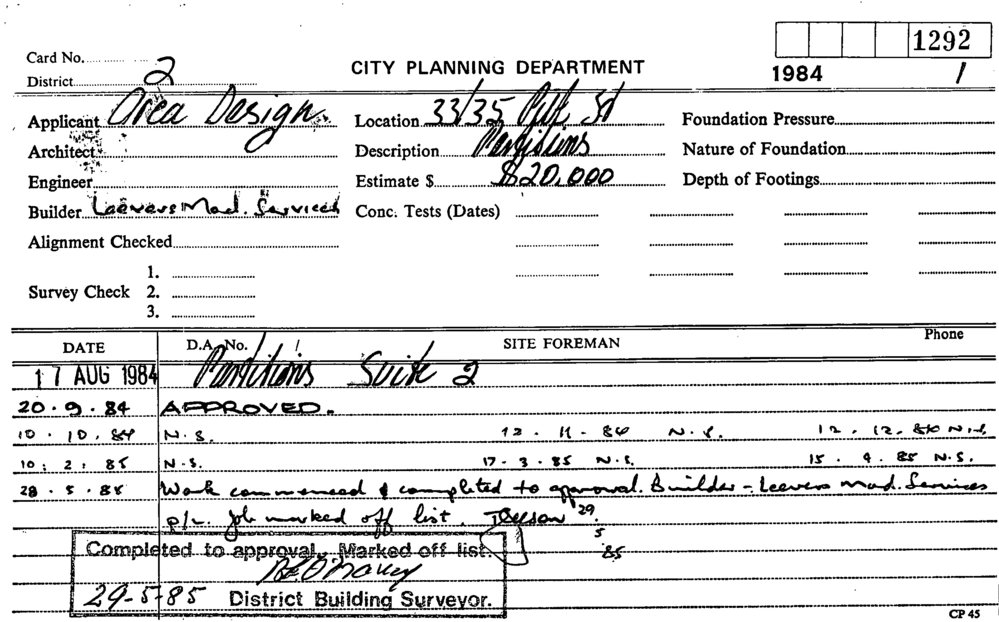 1292
Card No.
District 2
CITY PLANNING DEPARTMENT
1984 /
Applicant Area Design
Location 33/35 Pitt St
Foundation Pressure
Architect
Description Partitions
Nature of Foundation
Engineer
Estimate $ $20,000
Depth of Footings
Builder Leevers Mod. Services
Conc. Tests (Dates)
Alignment Checked
1.
Survey Check 2.
3.
DATE D.A. No. SITE FOREMAN Phone
17 AUG 1984 Partitions Suite 2
20.9.84 APPROVED.
10.10.84 N.S. 12.11.84 N.S. 12.12.84 N.S.
10.2.85 N.S. 17.3.85 N.S. 15.4.85 N.S.
28.5.85 Work commenced & completed to approval. Builder - Leevers Mod. Services
P/L. Job marked off list. 29.
5
85
Completed to approval. Marked off list.
29-5-85 District Building Surveyor.
CP 45